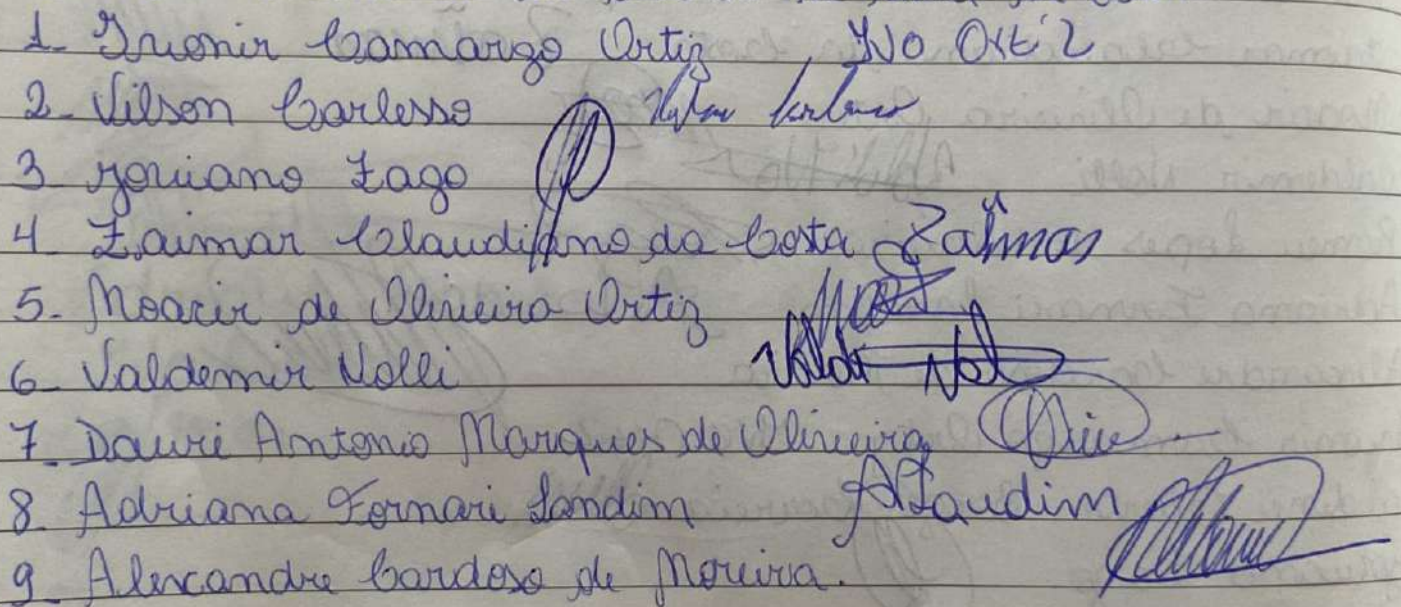 1- Ivonir Camargo Ortiz Ivo Ortiz
2- Vilson Carlesso
3- Joviano Zago
4 Zaimar Claudi da Costa Zaimar
5- Moacir de Oliveira Ortiz
6- Valdemir Nolli Valde Nol
7- Dauri Antonio Marques de Oliveira
8- Adriana Fornari Landim ALandim
9- Alexcandre Cardoso de Moreira.